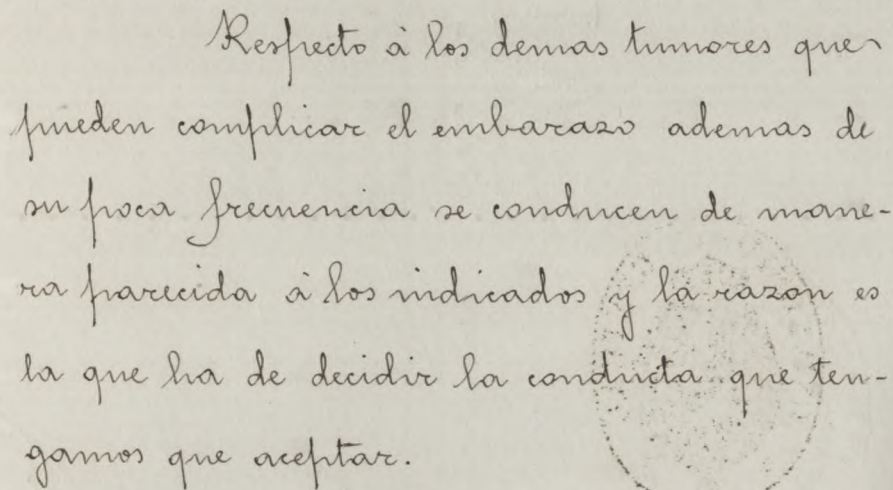 Respecto à los demas tumores que
pueden complicar el embarazo ademas de
su poca frecuencia se conducen de mane-
ra parecida à los indicados y la razon es
la que ha de decidir la conducta que ten-
gamos que aceptar.